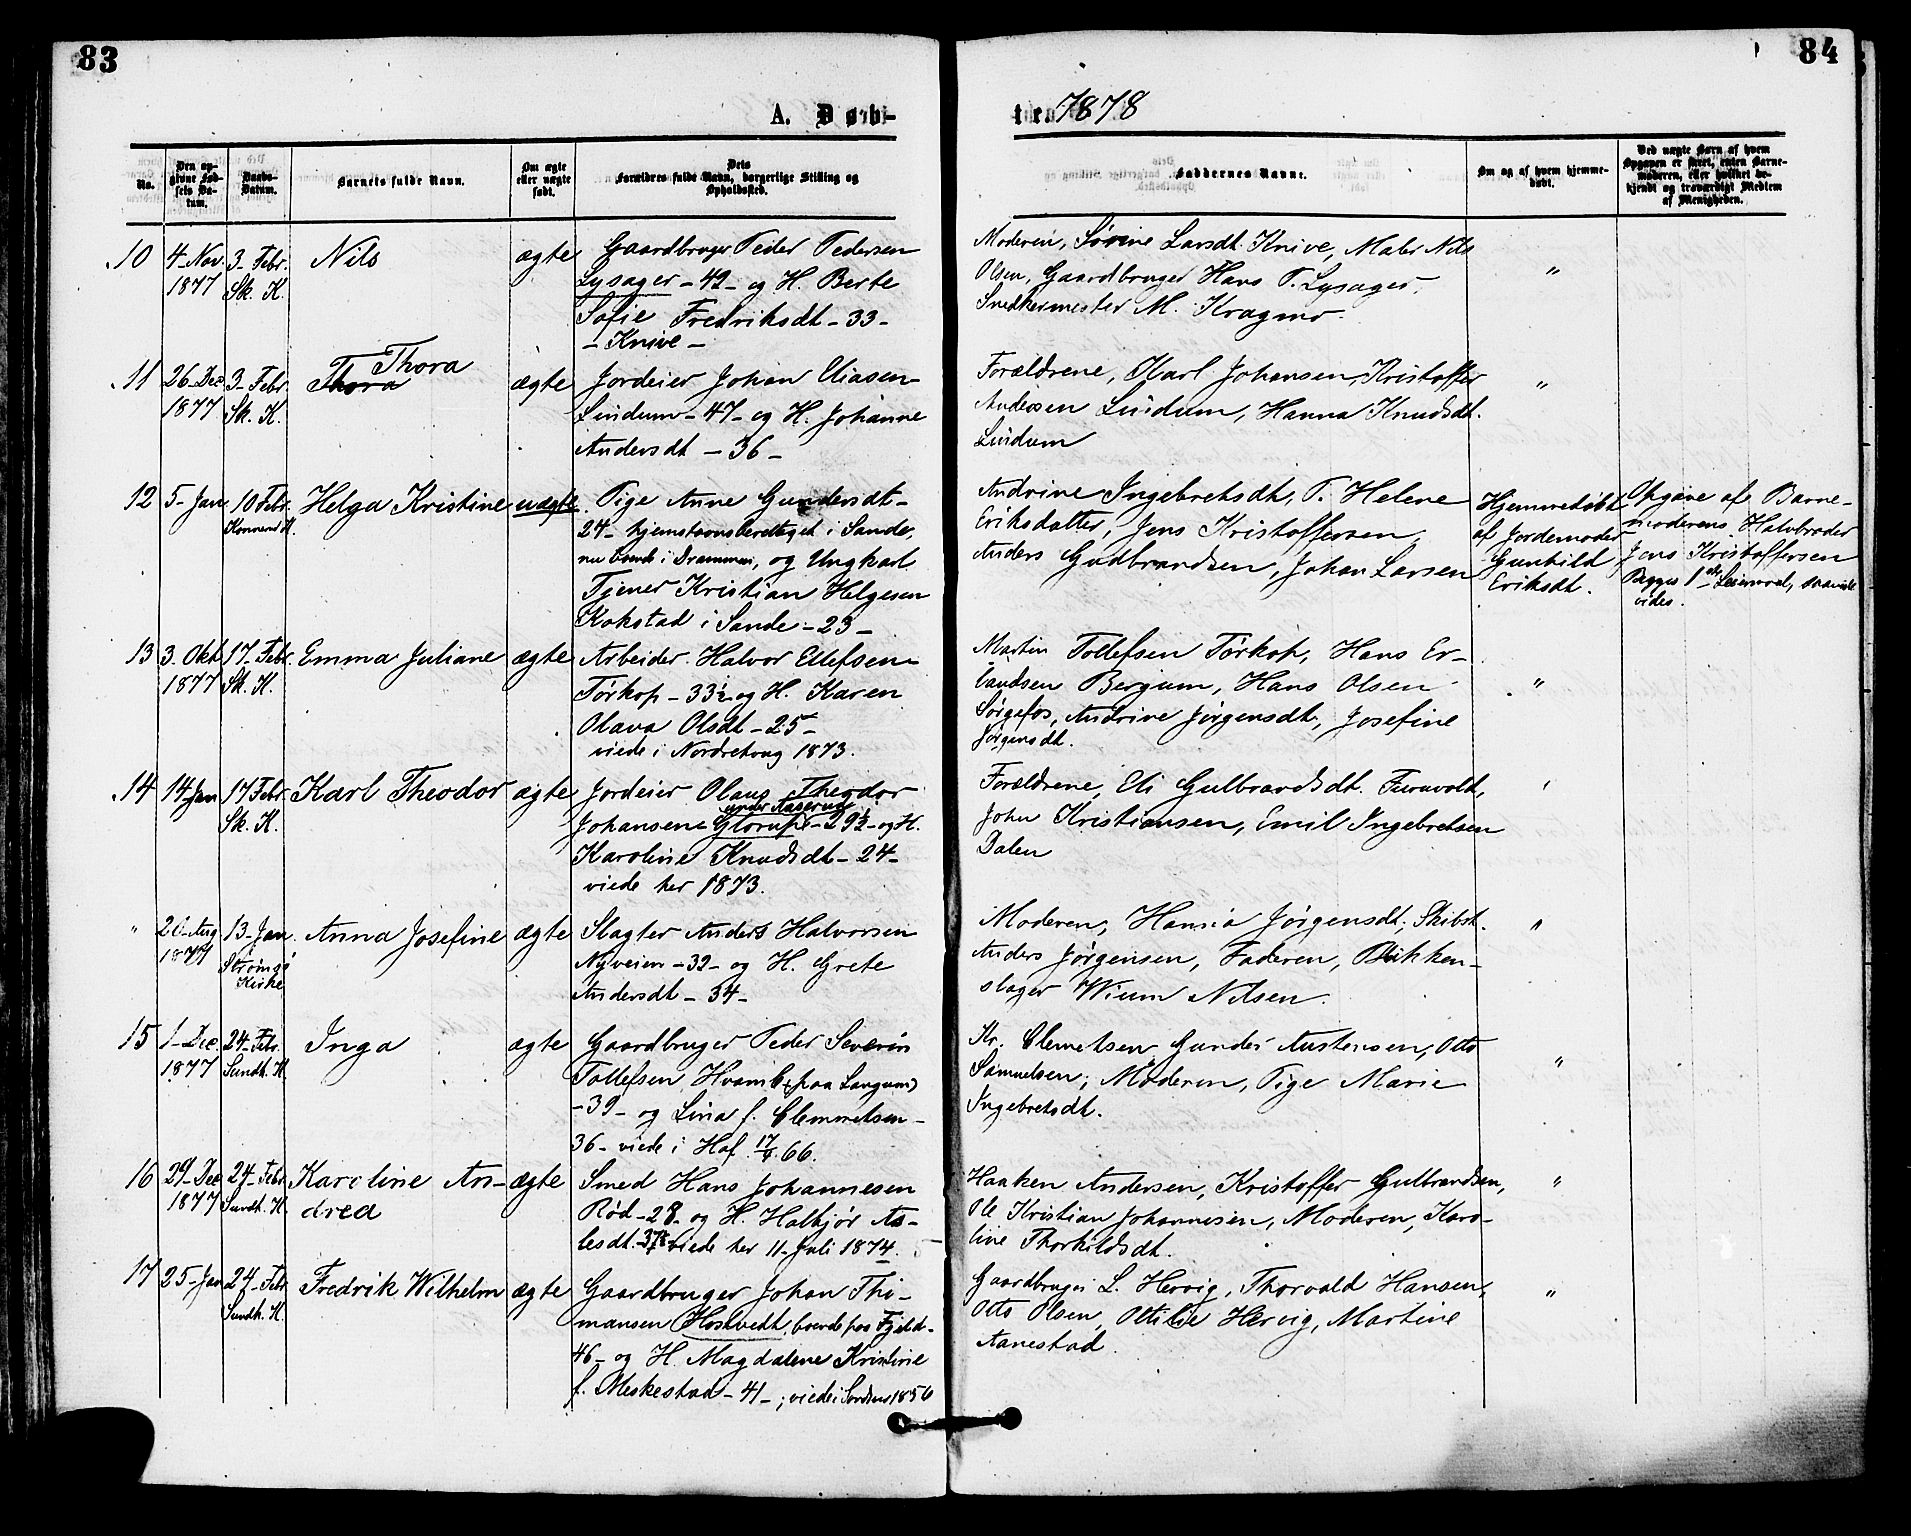 83
84
A. Døb-
te. 1878
No.
Den opgivne Fødsels Datum.
Daabs-Datum.
Barnets fulde Navn.
Om ægte eller uægte født.
Dets Forældres fulde Navn, borgerlige Stilling og Opholdssted.
Faddernes Navne.
Om og af hvem hjemmedøbt.
Ved uægte Børn af hvem Opgaven er skeet, enten Barnemoderen, eller hvilket bekjendt og troværdigt Medlem af Menigheden.
10 4-Nov. 1877 3-Febr. Sk. K. Nils ægte
Gaardbruger Peder Pedersen
Lysager -42- og H. Berte
Sofie Fredriksdt -33-
- Knive -
Moderen, Sørine Larsdt. Knive, Maler Nils
Olsen, Gaardbruger Hans P. Lysager,
Snedkermester M. Kragmo.
"
11 26-Dec 1877 3-Febr. Sk. K. Thora Thora ægte
Jordeier Johan Eliasen
Lindum -47- og H. Johanne
Andersdt -36-
Forældrene, Karl Johansen, Kristoffer
Andersen Lindum, Hanna Knudsdt.
Lindum
"
12 5-Jan 10 Febr. Konnerud K. Helga Kristine uægte
Pige Anne Gundersdt-
24- hjemstavnsberettiget i Sande,
nu boende i Drammen, og Ungkarl
Tjener Kristian Helgesen
Kokstad i Sande -23-
Andrine Ingebretsdt, P. Helene
Eriksdatter, Jens Kristoffersen,
Anders Gudbrandsen, Johan Larsen
Hjemmedøbt
af Jordemoder
Gunhild
Eriksdt.
Opgave af Barne-
moderens Halvbroder
Jens Kristoffersen
Begges 1ste Leiermaal, saavidt
vides.
13 3. Okt 1877 17-Febr. Sk. K. Emma Juliane ægte
Arbeider Halvor Ellefsen
Tørkop -33½- og H. Karen
Olava Olsdt -25-
viede i Nordrehoug 1873.
Martin Tollefsen Tørkop, Hans Er-
landsen Bergum, Hans Olsen
Sørgefos, Andrine Jørgensdt, Josefine
Jørgensdt.
"
14 14-Jan 17 Febr. Sk. K. Karl Theodor ægte
Jordeier Olaus Theodor
under Aaserud
Johansen Glorupe -29½- og H.
Karoline Knudsdt -24-
viede her 1873.
Forældrene, Eli Gulbrandsdt. Furuvold,
John Kristiansen, Emil Ingebretsen
Dalen
"
" 20-Aug 1877 13-Jan. Strømsø Kirke Anna Josefine ægte
Slagter Anders Halvorsen
Nyveien -32- og H. Grete
Andersdt -34-
Moderen, Hansia Jørgensdt, Skibst.
Anders Jørgensen, Faderen, Blikken-
slager Wium Nilsen.
"
15 1-Dec. 1877 24-Febr. Sundh. K. Inga ægte
Gaardbruger Peder Severin
Tollefsen Hvamb (paa Langum)
-39- og Lina f. Clemmetsen-
36- viede i Haf. 66.
Kr. Clemetsen, Gunder Austensen, Otto
Samuelsen, Moderen, Pige Marie
Ingebretsdt.
"
16 29-Dec 1877 24-Febr Sundh. K. Karoline An-
drea ægte
Smed Hans Johannesen
Rød -28- og H. Halkjør As-
lesdt. viede her 11-Juli 1874.
Haaken Andersen, Kristoffer Gulbrandsen,
Ole Kristian Johannesen, Moderen, Karo-
line Thorkildsdt.
"
17 25-Jan 24-Febr Sundh. K. Fredrik Wilhelm ægte
Gaardbruger Johan Thi-
mansen Hostvedt, boende paa Fjeld-
46- og H. Magdalene Kristine
f. Meskestad -41-; viede i 1856
Gaardbruger L. Hervig, Thorvald Hansen,
Otto Olsen, Ottilie Hervig, Martine
Aanestad.
"